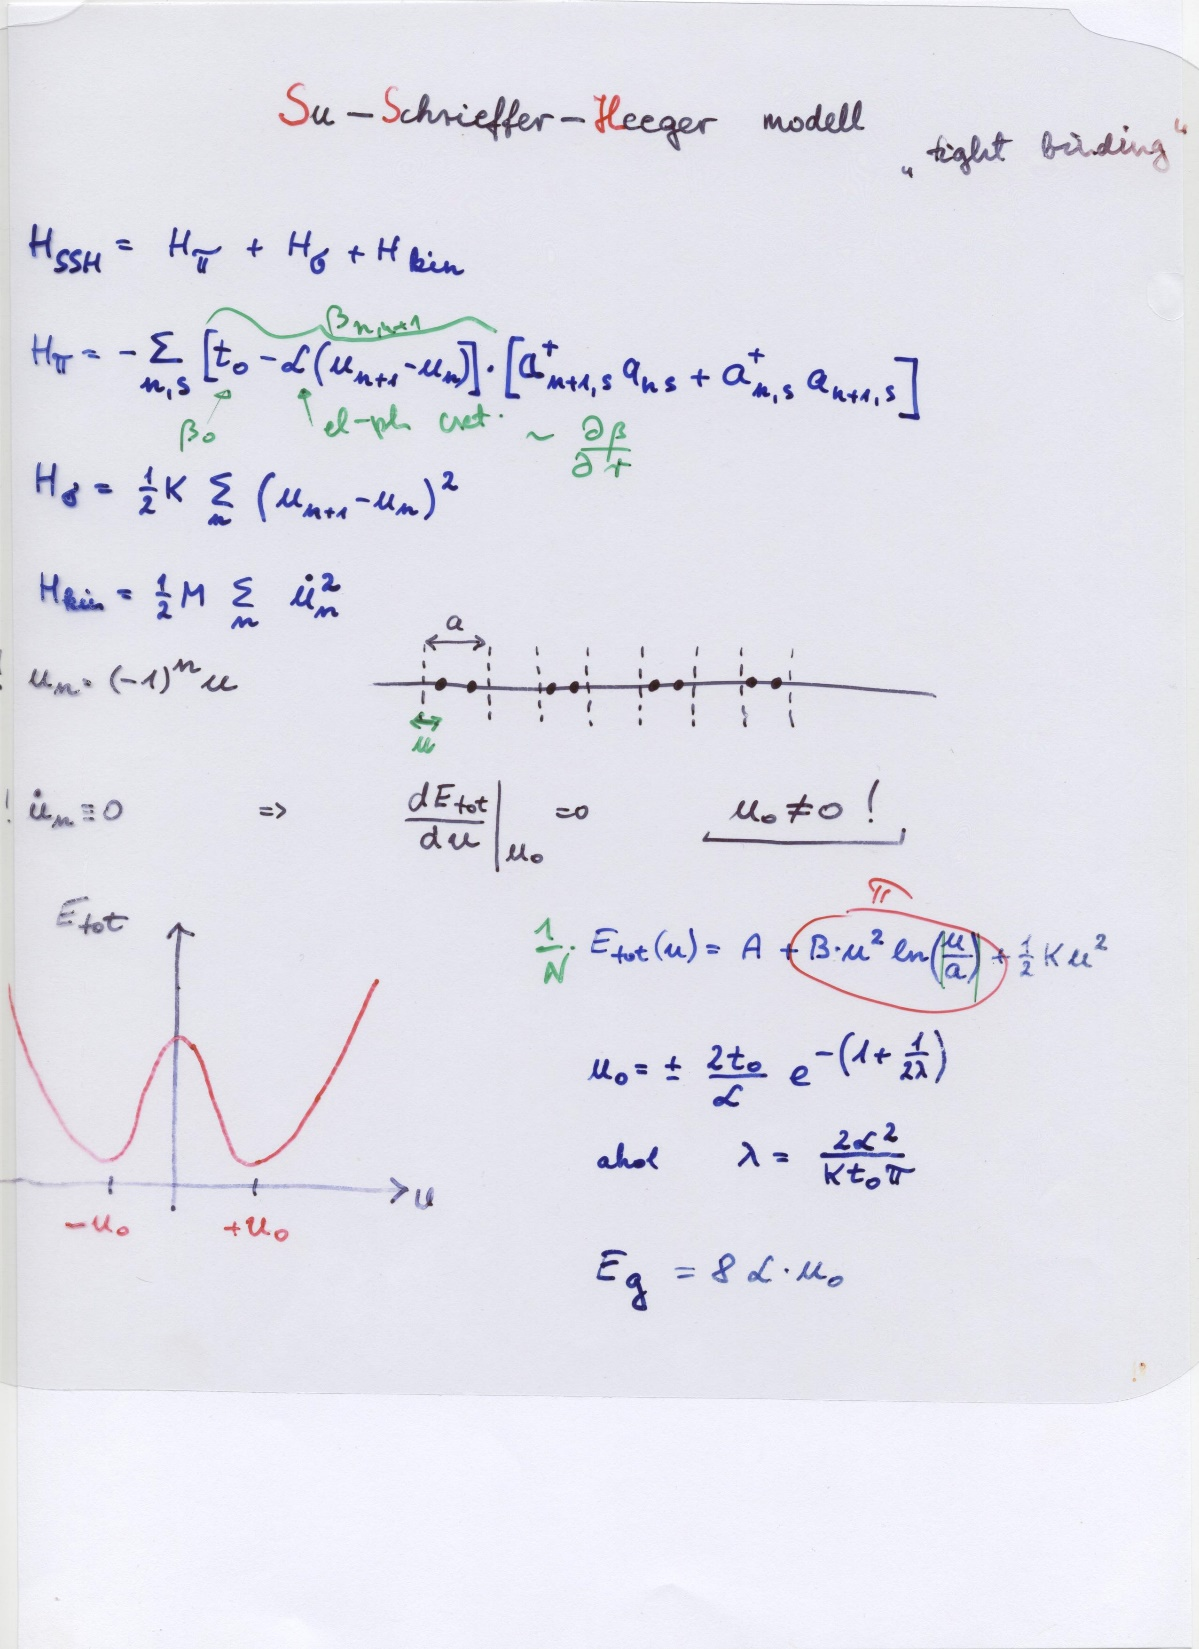 Su – Schrieffer – Heeger modell
„tight binding"
H_SSH = H_π + H_σ + H_kin
β_n,n+1
H_π = - Σ_n,s [t₀ - α(u_n+1 - u_n)] · [a⁺_n+1,s a_ns + a⁺_n,s a_n+1,s]
β₀ el-ph csat. ~ ∂β/∂r
H_σ = 1/2 K Σ_n (u_n+1 - u_n)²
H_kin = 1/2 M Σ_n u̇_n²
a
u_n = (-1)ⁿ u
u
! u̇_n ≡ 0 => dE_tot/du |_u₀ =0 u₀ ≠ 0 !
E_tot
π
1/N · E_tot(u) = A + B·u² ln(|u/a|) + 1/2 K u²
u₀ = ± 2t₀/α e^-(1 + 1/2λ)
ahol λ = 2α²/Kt₀π
u
-u₀ +u₀
E_g = 8 α · u₀